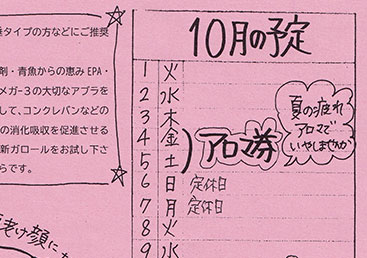 タイプの方などにご推奨
剤・青魚からの恵みEPA・
メガ-3の大切なアブラを
して、コンクレバンなどの
の消化吸収を促進させる
新ガロールをお試し下さ
らです。
老け顔に
10月の予定
1 火
2 水
3 木
4 金
5 土
アロマ券
夏の疲れ
アロマで
いやしませんか
6 日 定休日
7 月 定休日
8 火
9 水